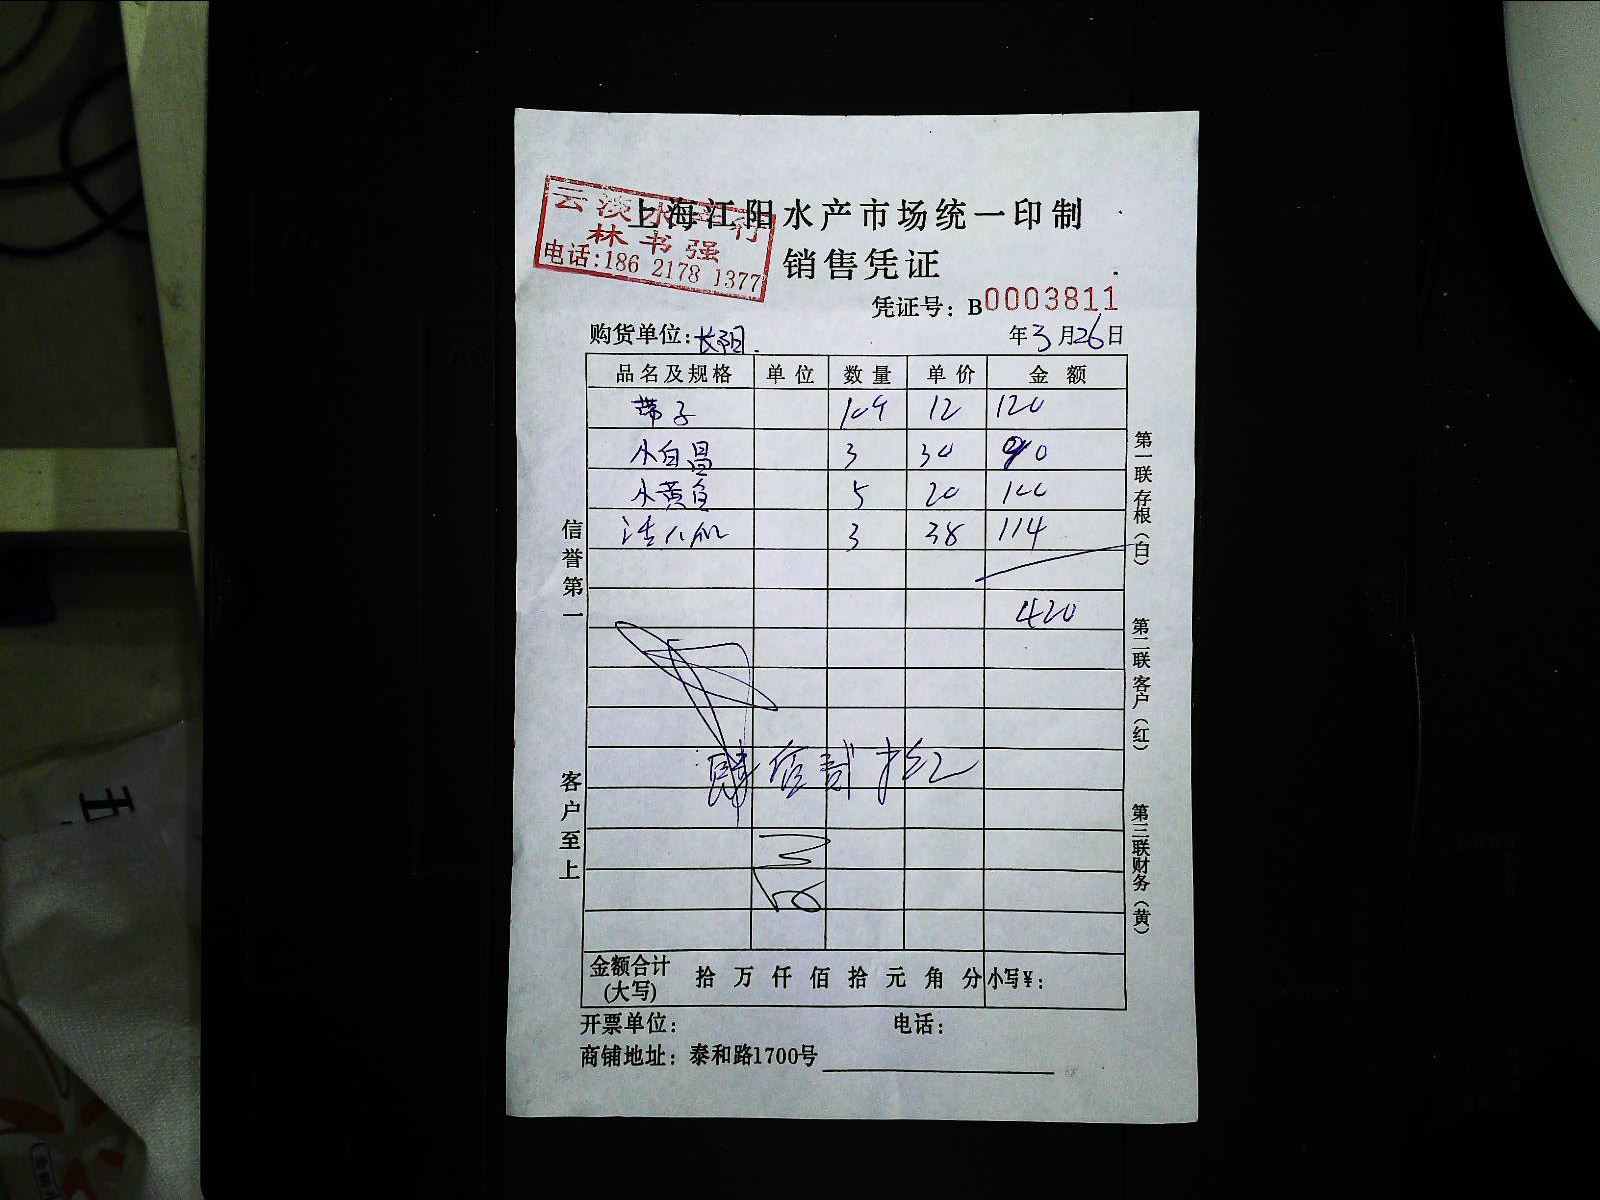 云淡水产行
林书强
电话:186 2178 1377
上海江阳水产市场统一印制
销售凭证
凭证号: B0003811
购货单位:长阳. 年3月26日
品名及规格 单位 数量 单价 金额
带子 12 120
小白昌 3 30 90
小黄鱼 5 20 100
3 38 114
420
信誉第一
客户至上
第一联 存根(白)
第二联 客户(红)
第三联 财务(黄)
金额合计(大写) 拾 万 仟 佰 拾 元 角 分 小写¥:
开票单位: 电话:
商铺地址: 泰和路1700号
五